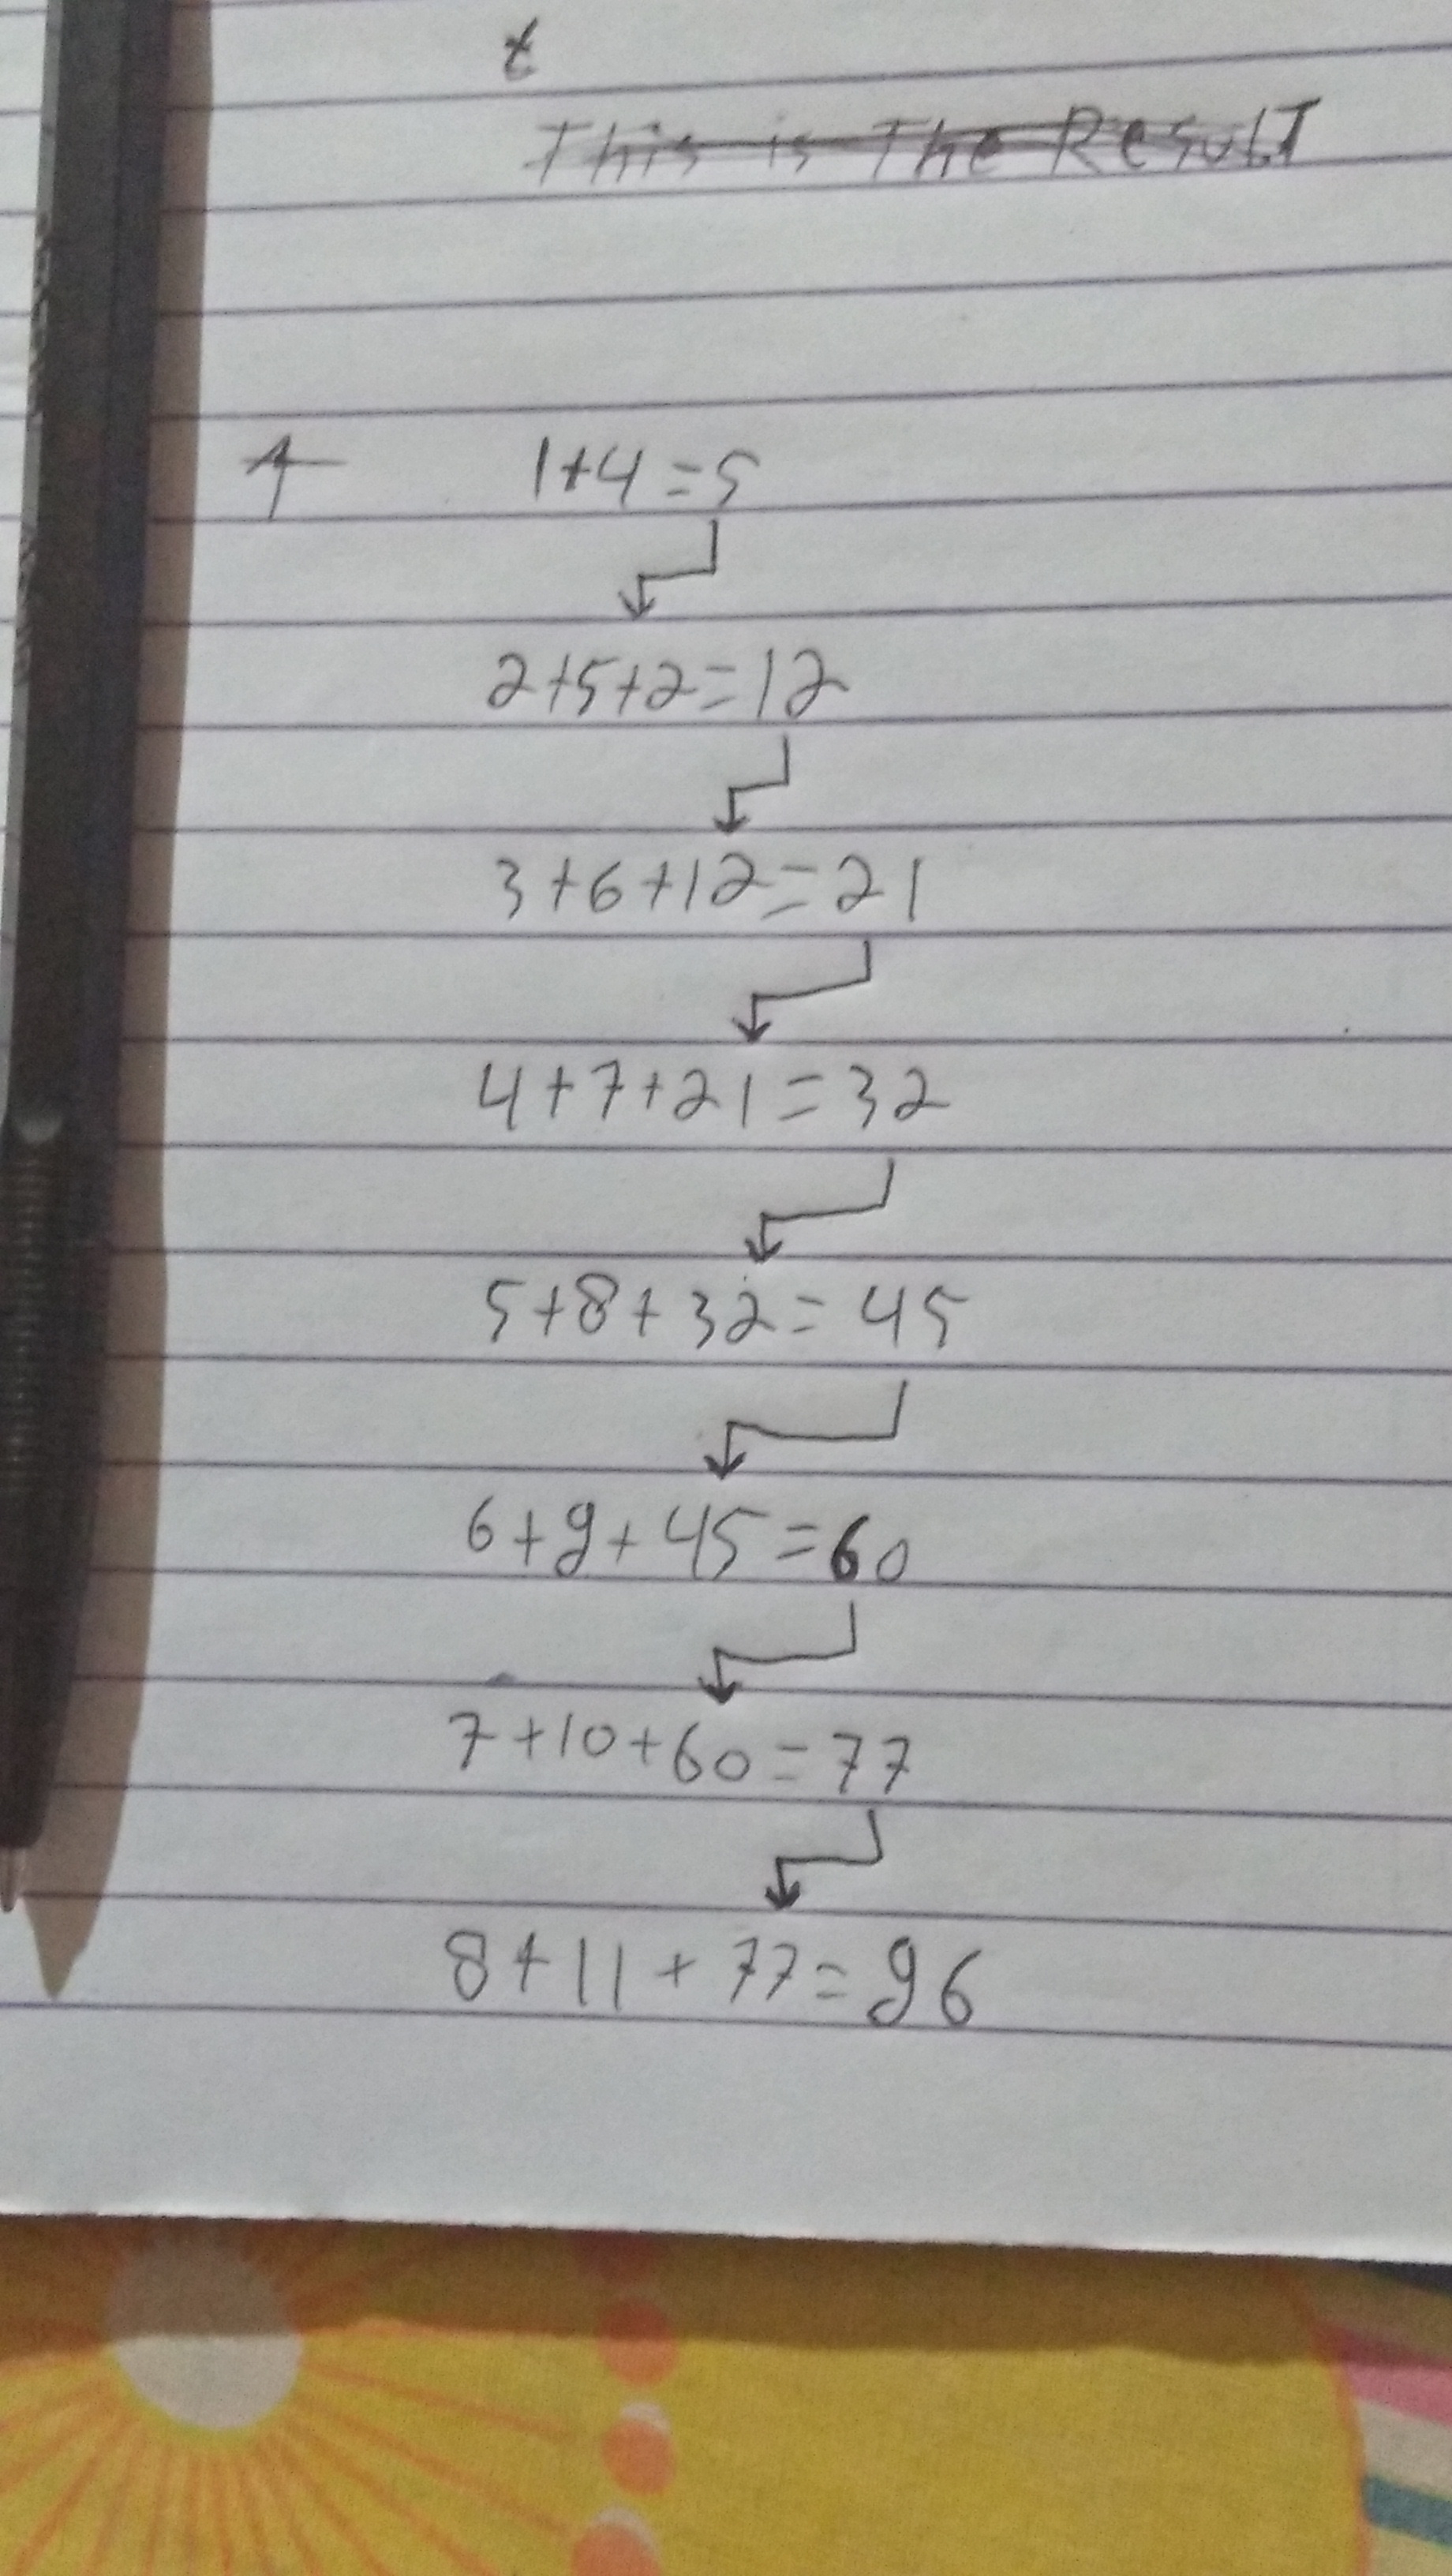 t
This is The Result
1+4=5
2+5+2=12
3+6+12=21
4+7+21=32
5+8+32=45
6+9+45=60
7+10+60=77
8+11+77=96